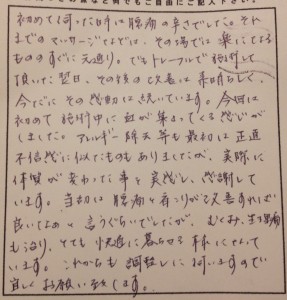 初めて伺った日は腰痛の辛さでした。それ
までのマッサージなどでは、その場では楽になる
もののすぐに元通り。でもトレーフルで施術して
頂いた翌日、その後の改善は素晴らしく、
今だにその感動は続いています。今回は
初めて施術中に血が集まってくる感じが
しました。アレルギー除去等も最初は正直
不信感に似たものもありましたが、実際に
体質が変わった事を実感し、感謝して
います。当初は腰痛と肩こりが改善すれば
良いなぁと言うぐらいでしたが、むくみ、生理痛
も治り、とても快適に暮らせる様になって
います。これからも調整しに伺いますので
宜しくお願い致します。